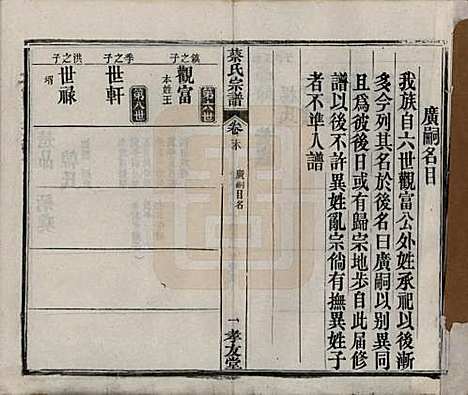 廣嗣名目
我族自六世觀富公外姓承祀以後漸
多今列其名於後名曰廣嗣以別異同
且爲彼後日或有歸宗地步自此屆修
譜以後不許異姓亂宗倘有撫異姓子
者不準入譜
蔡氏宗譜
卷末
廣嗣目名
一
孝友堂
第六世
鎮之子
觀富
本姓王
第八世
季之子
世軒
洪之子
世祿
壻